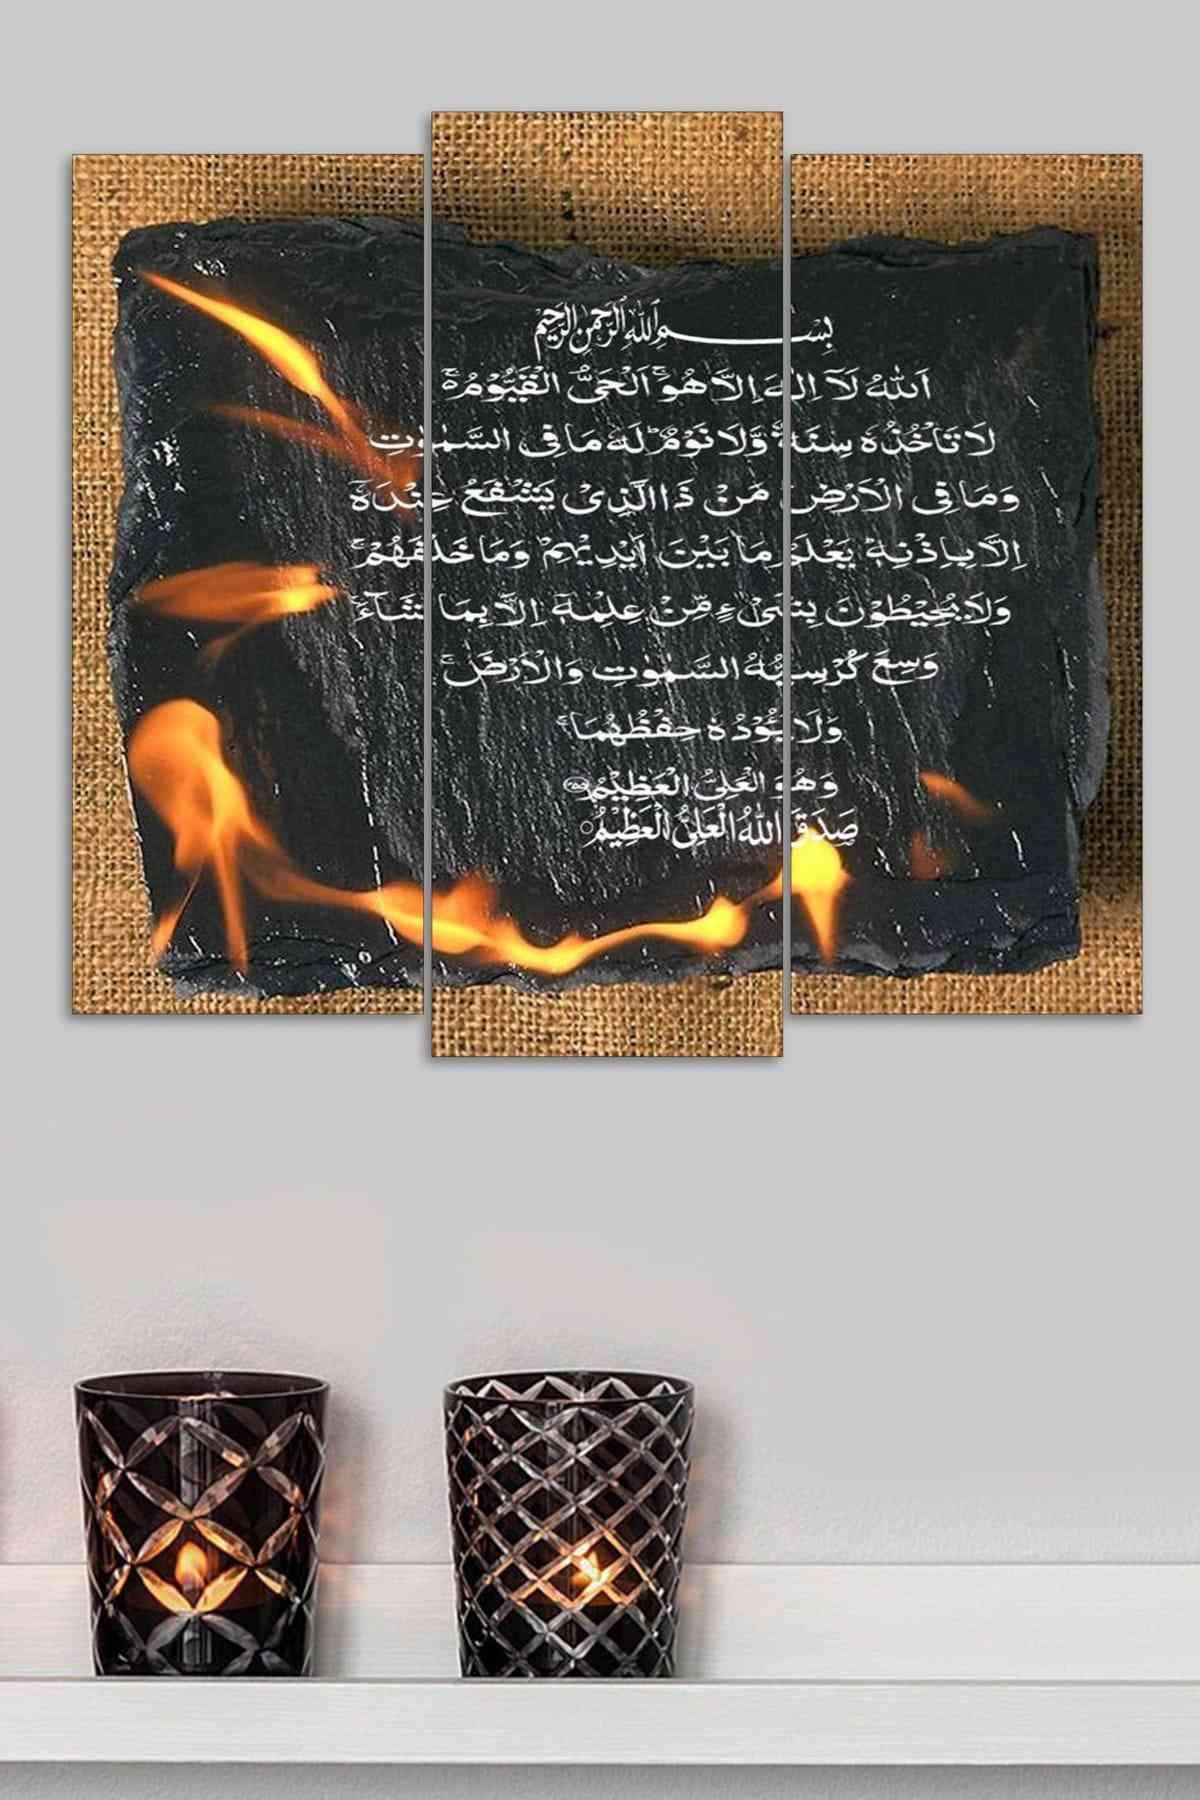 بِسْــــمِ اللّٰهِ الرَّحْمٰنِ الرَّحِيمِ
اَللّٰهُ لَآ اِلٰهَ اِلَّا هُوَۚ اَلْحَيُّ الْقَيُّوْمُۚ
لَا تَاْخُذُهٗ سِنَةٌ وَّلَا نَوْمٌؕ لَهٗ مَا فِى السَّمٰوٰتِ
وَمَا فِى الْاَرْضِؕ مَنْ ذَا الَّذِىْ يَشْفَعُ عِنْدَهٗٓ
اِلَّا بِاِذْنِهٖؕ يَعْلَمُ مَا بَيْنَ اَيْدِيْهِمْ وَمَا خَلْفَهُمْۚ
وَلَا يُحِيْطُوْنَ بِشَىْءٍ مِّنْ عِلْمِهٖٓ اِلَّا بِمَا شَآءَۚ
وَسِعَ كُرْسِيُّهُ السَّمٰوٰتِ وَالْاَرْضَۚ
وَلَا يَؤُدُهٗ حِفْظُهُمَاۚ
وَهُوَ الْعَلِىُّ الْعَظِيْمُ ﴿٢٥٥﴾
صَدَقَ اللّٰهُ الْعَلِىُّ الْعَظِيْمُ